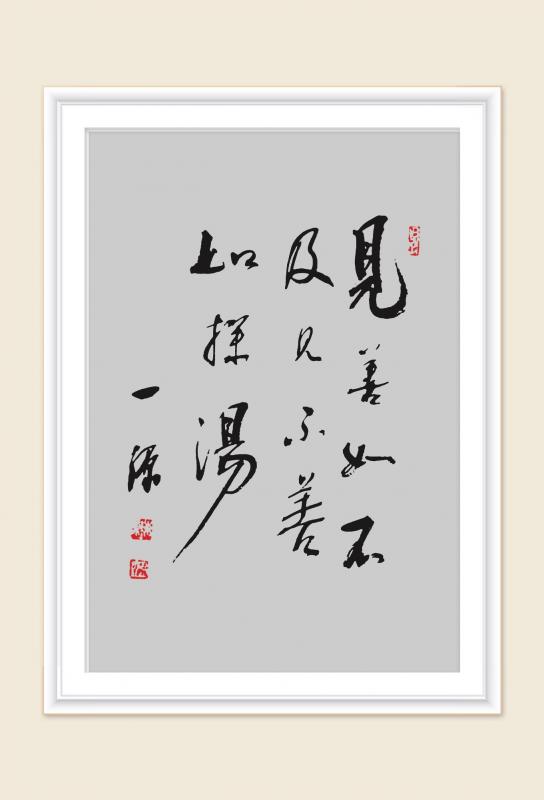 見善如不
及見不善
如探湯
一源